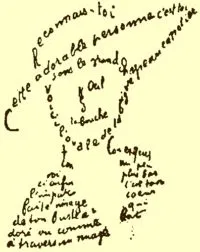 Reconnais-toi
Cette adorable personne c'est toi
sous le grand chapeau canotier
Œil
Nez
la bouche
Voici l'ovale de ta figure
Ton
Cou exquis
voi
ci enfin
l'impar
faite image
de ton buste a
doré vu comme
à travers un nuage
un peu
plus bas
c'est ton
coeur
qui
bat